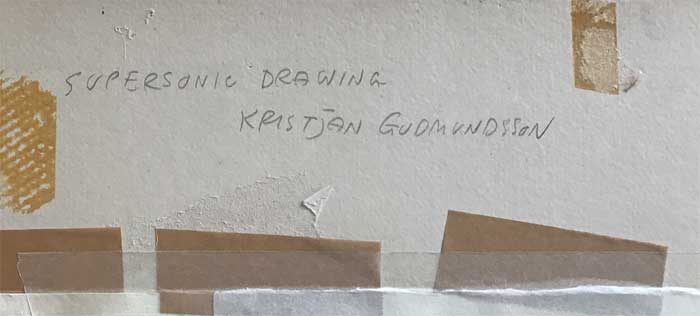 SUPERSONIC DRAWING
KRISTJÁN GUDMUNDSSON